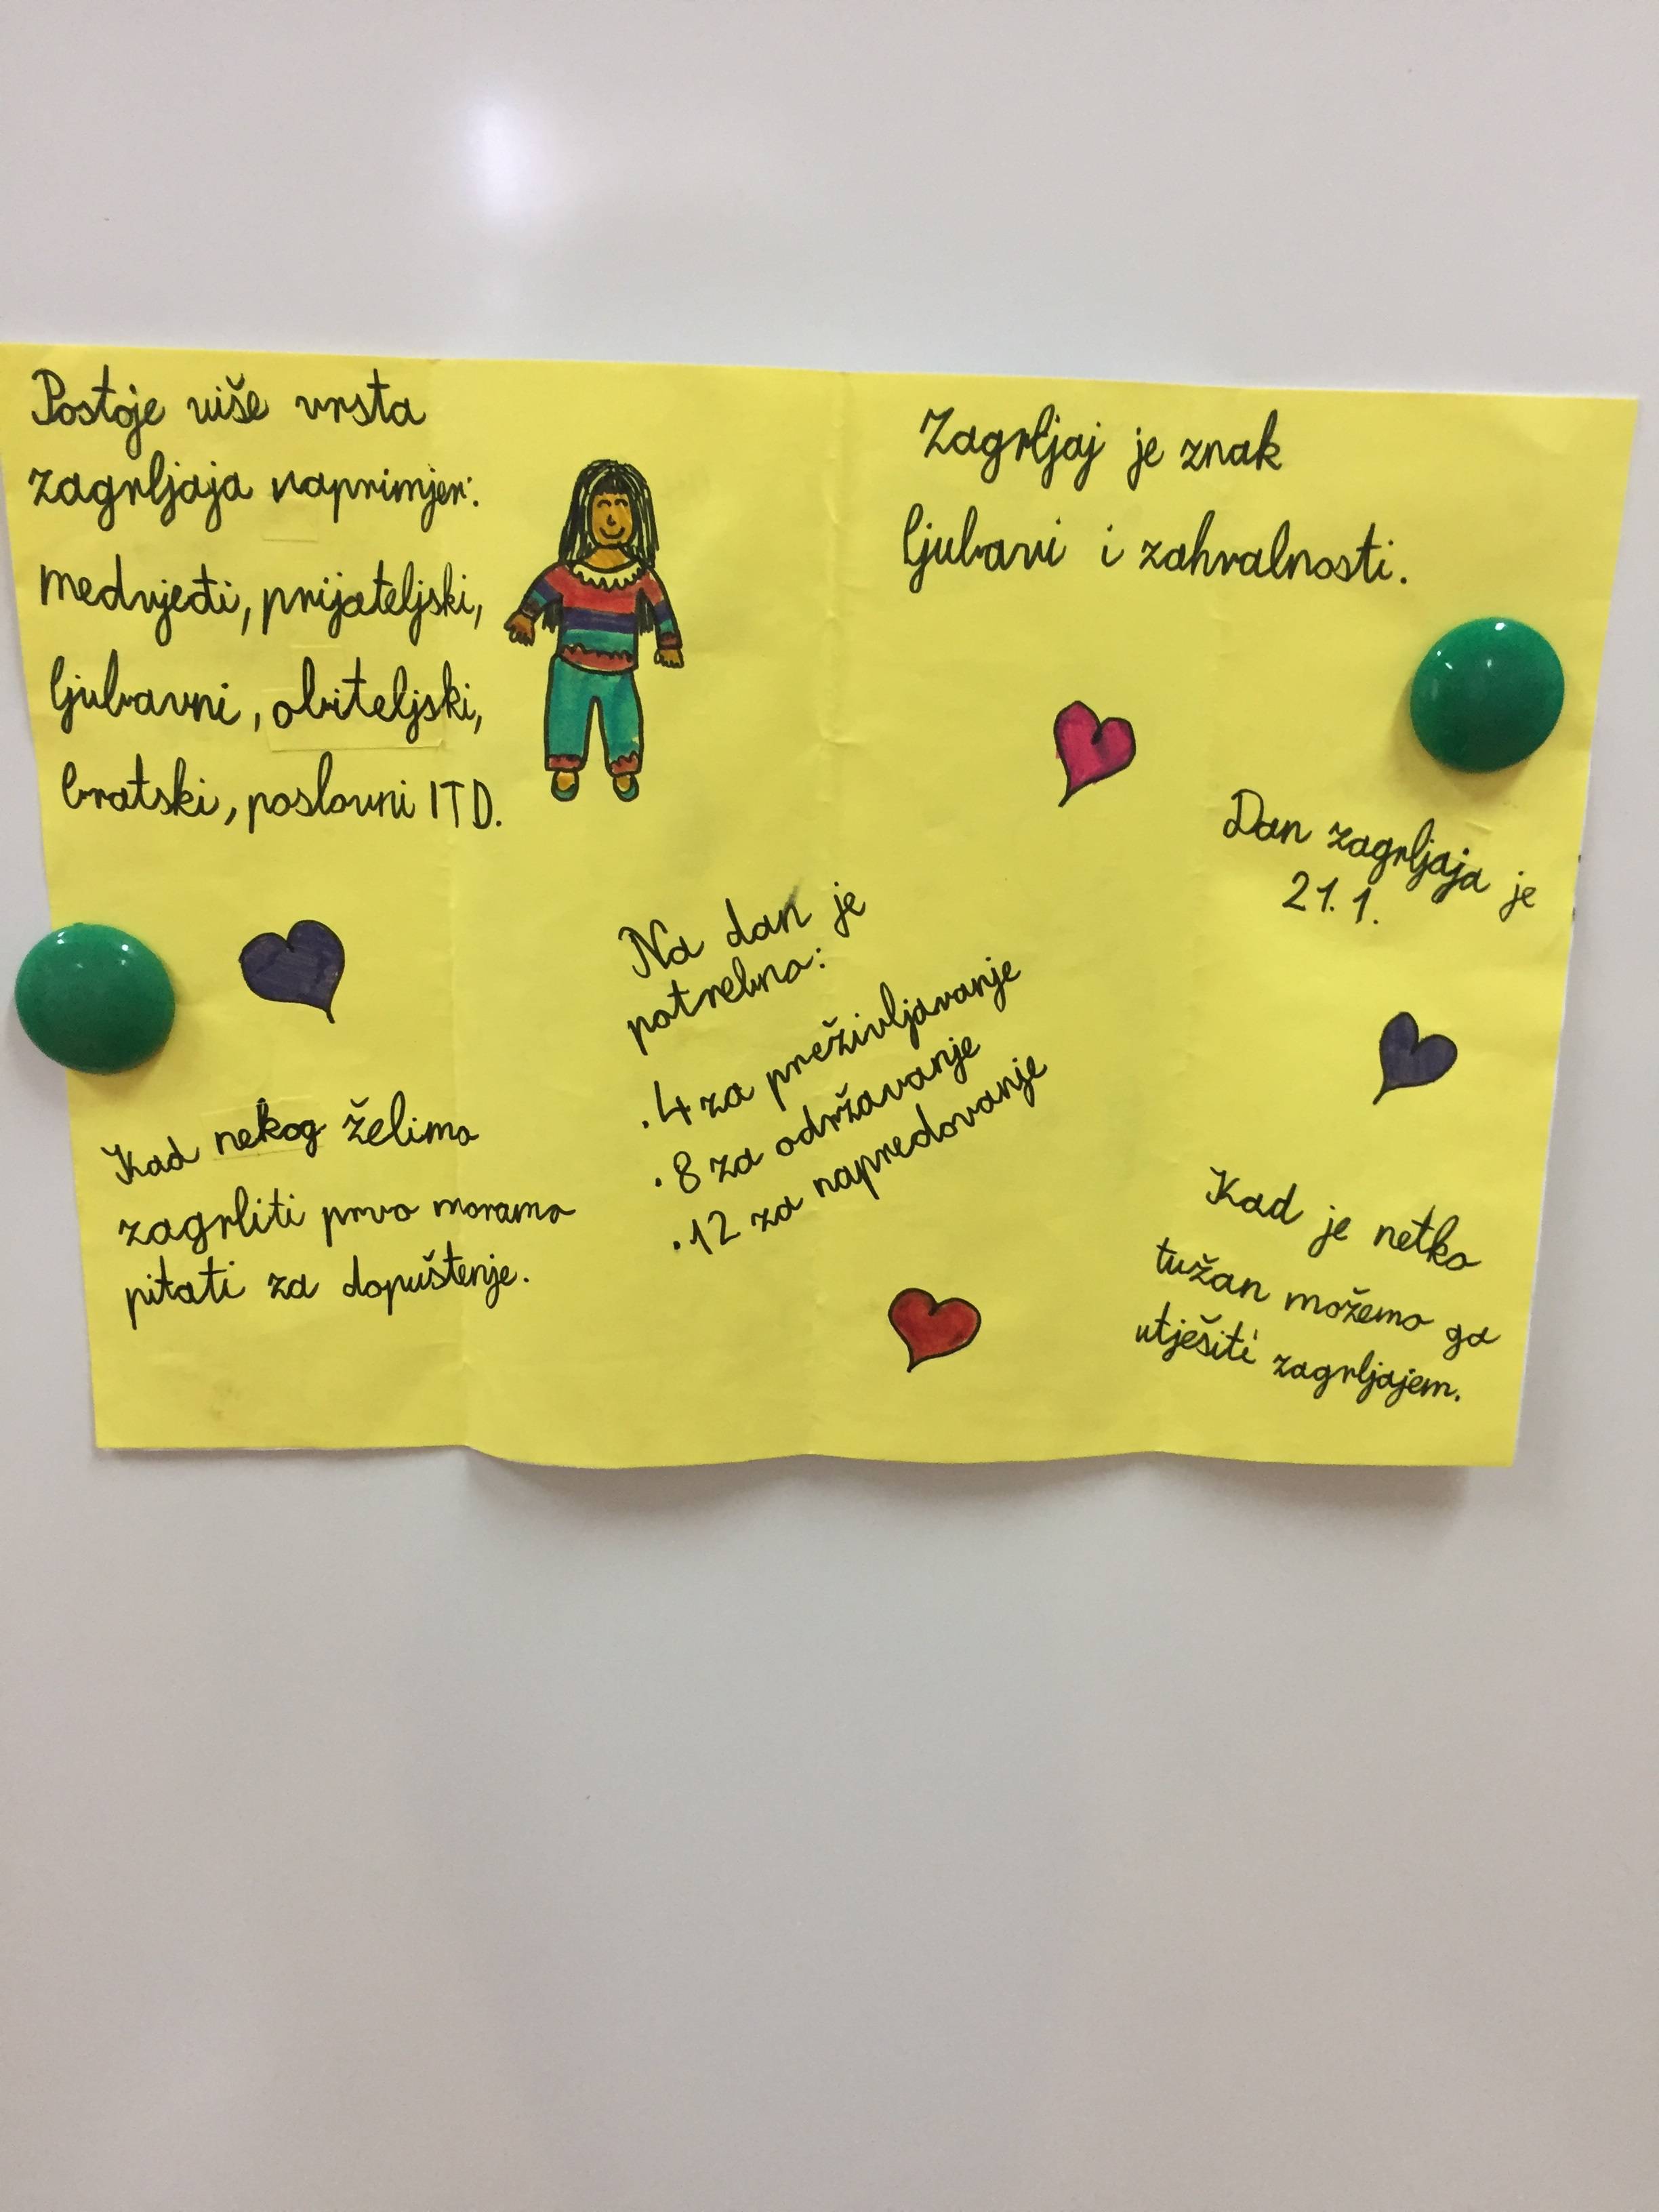 Postoje više vrsta
zagrljaja naprimjer:
medvjeđi, prijateljski,
ljubavni, obiteljski,
bratski, poslovni ITD.
Zagrljaj je znak
ljubavi i zahvalnosti.
Dan zagrljaja je
21.1.
Na dan je
potrebno:
.4 za preživljavanje
.8 za održavanje
.12 za napredovanje
Kad nekog želimo
zagrliti prvo moramo
pitati za dopuštenje.
Kad je netko
tužan možemo ga
utješiti zagrljajem.